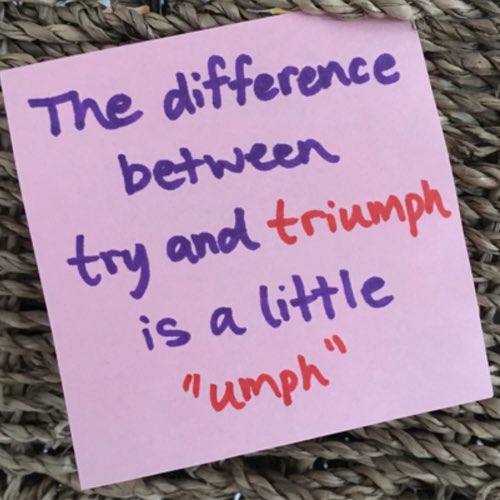 The difference
between
try and triumph
is a little
"umph"